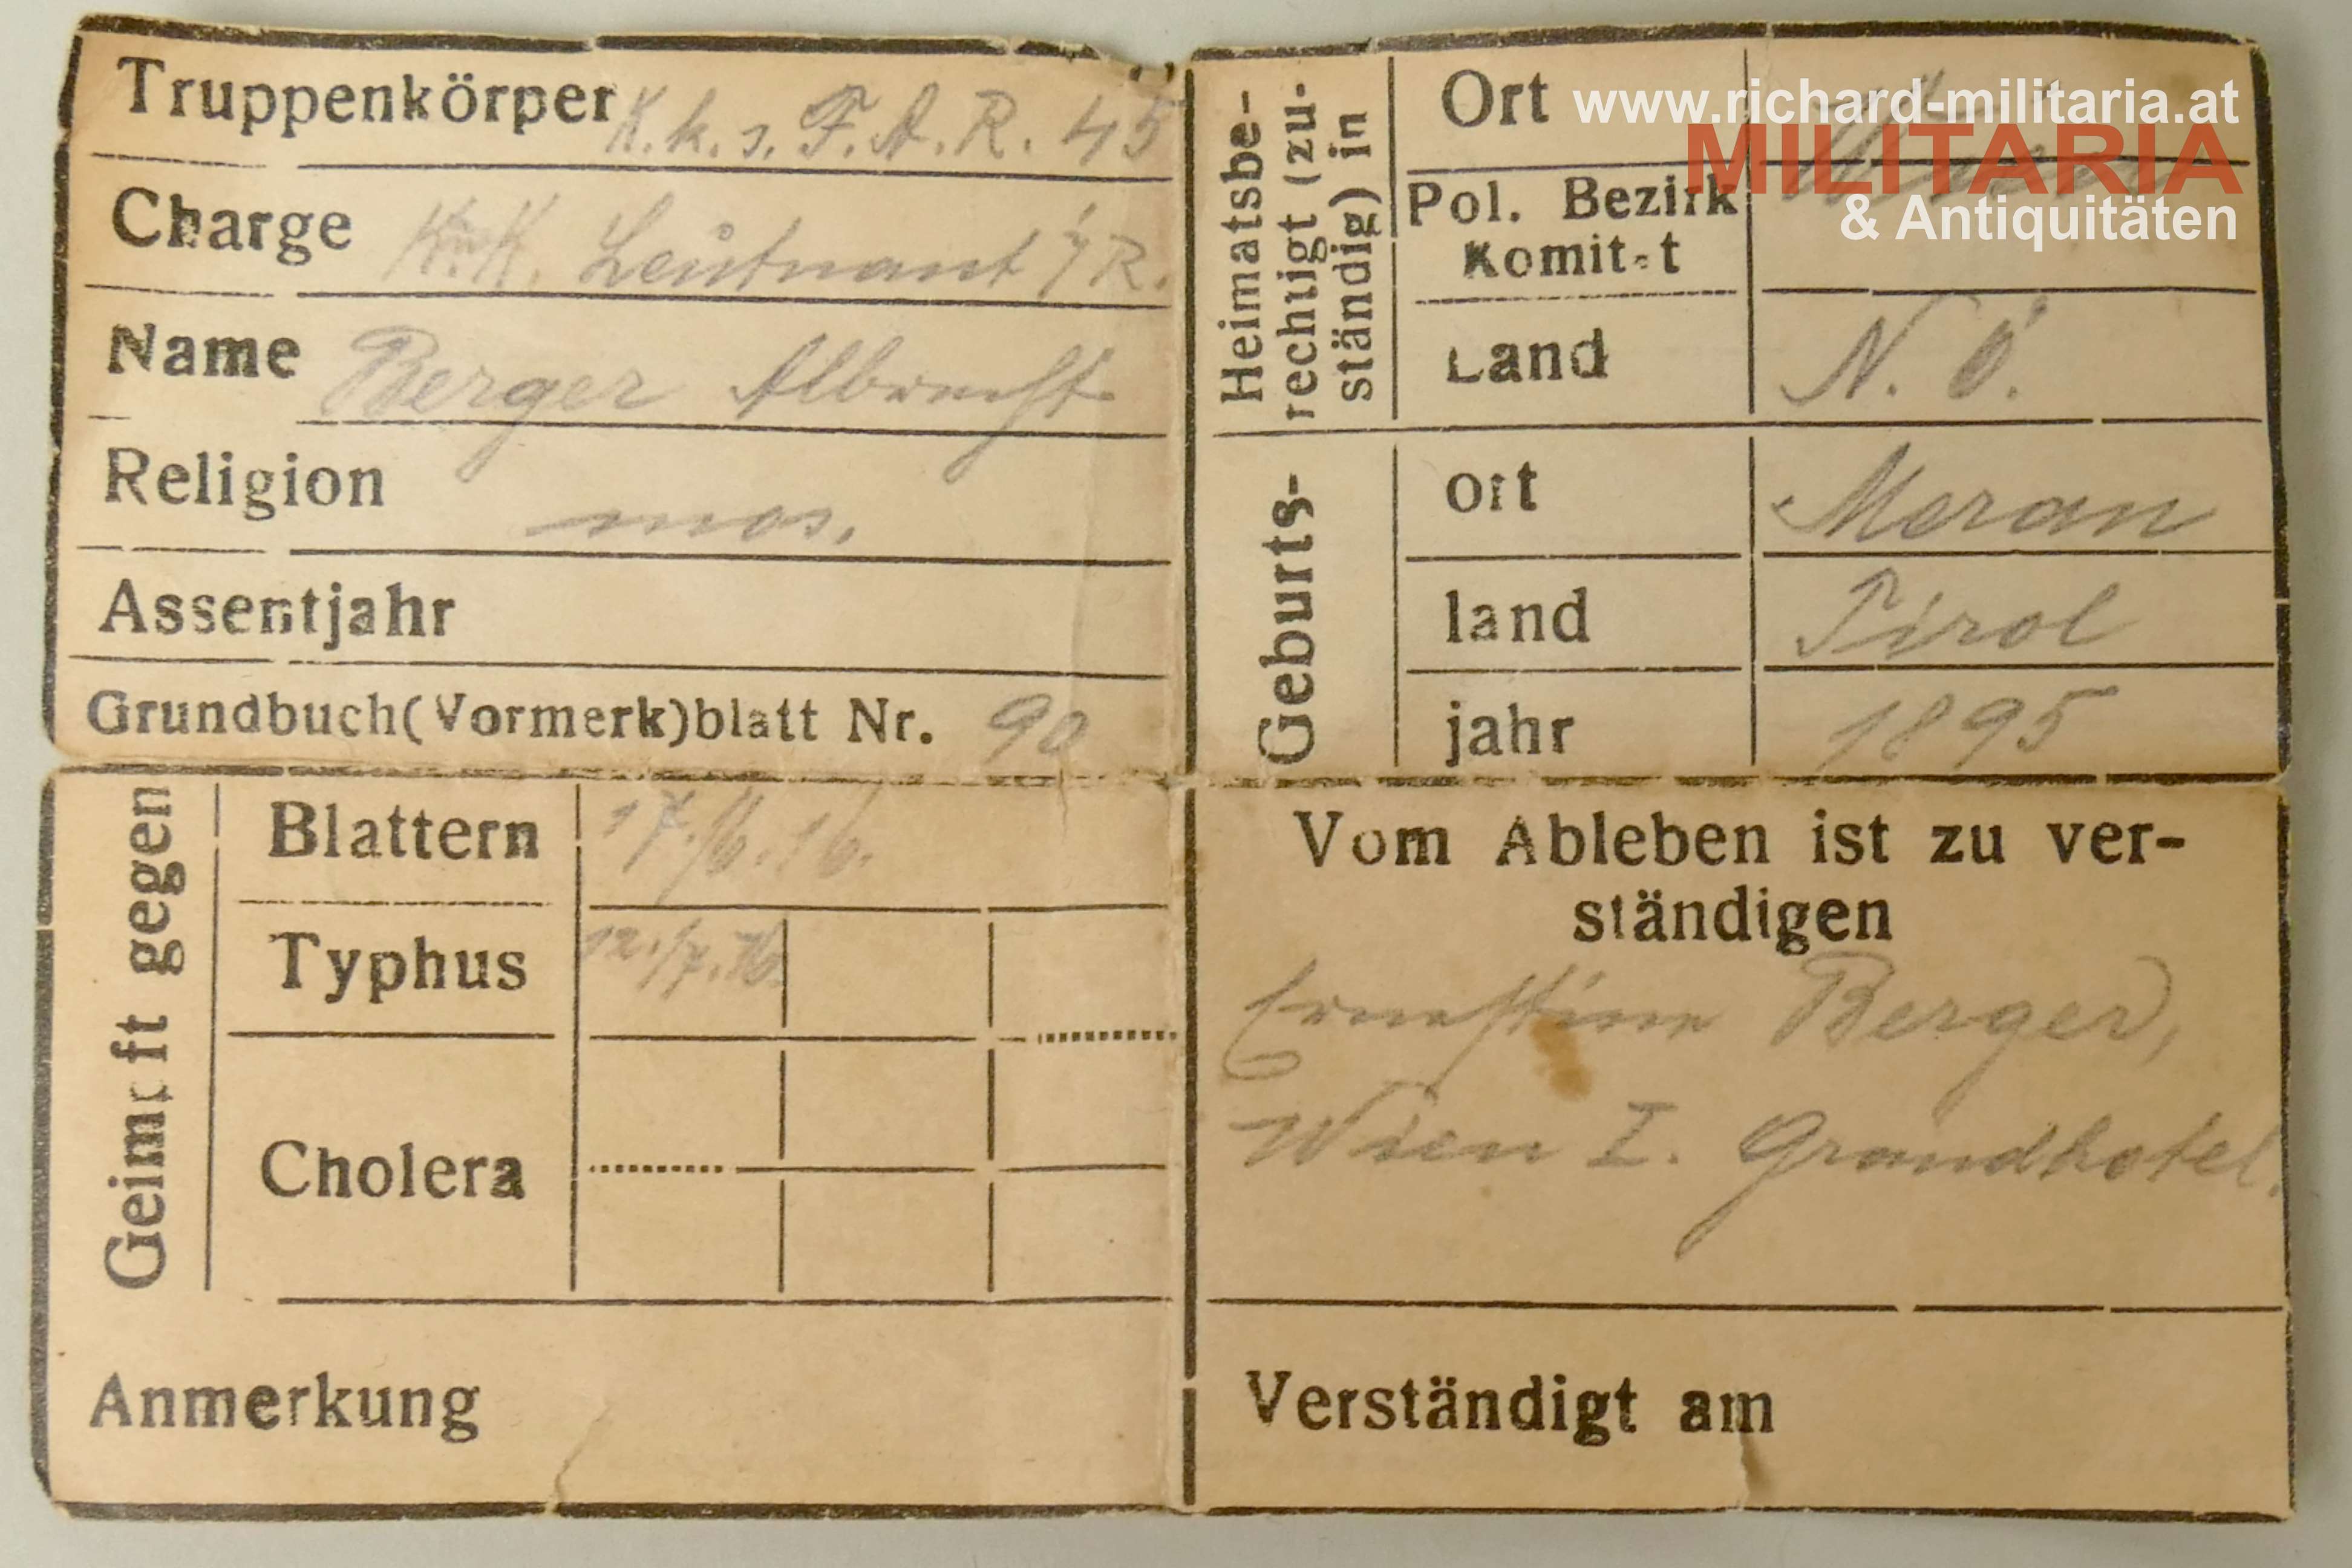 Truppenkörper K. k. s. F. A. R. 45
Charge K. u. K. Leutnant i/R.
Name Berger Albrecht
Religion mos.
Assentjahr
Grundbuch(Vormerk)blatt Nr. 90
Heimatsbe-
rechtigt (zu-
ständig) in
Ort Wien
Pol. Bezirk
Komitat
Land N. Ö.
Geburts-
ort Meran
land Tirol
jahr 1895
Geimpft gegen
Blattern 17./6.16.
Typhus 12./7.16.
Cholera
Anmerkung
Vom Ableben ist zu ver-
ständigen
Ernestine Berger,
Wien I. Grandhotel.
Verständigt am
www.richard-militaria.at
MILITARIA
& Antiquitäten